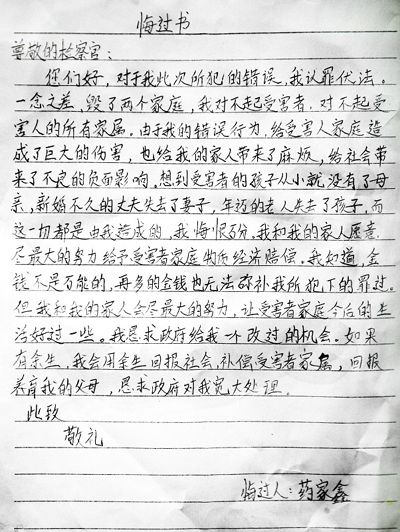 悔过书
尊敬的检察官：
您们好，对于我此次所犯的错误，我认罪伏法。
一念之差，毁了两个家庭，我对不起受害者，对不起受
害人的所有家属。由于我的错误行为，给受害人家庭造
成了巨大的伤害，也给我的家人带来了麻烦，给社会带
来了不良的负面影响，想到受害者的孩子从小就没有了母
亲，新婚不久的丈夫失去了妻子，年迈的老人失去了孩子，而
这一切都是由我造成的，我悔恨万分，我和我的家人愿意
尽最大的努力给予受害者家庭的经济赔偿。我知道，金
钱不是万能的，再多的金钱也无法弥补我所犯下的罪过。
但我和我的家人会尽最大的努力，让受害者家庭今后的生
活好过一些。我恳求政府给我一个改过的机会。如果
有余生，我会用余生回报社会，补偿受害者家属，回报
养育我的父母，恳求政府对我宽大处理。
此致
敬礼
悔过人：药家鑫